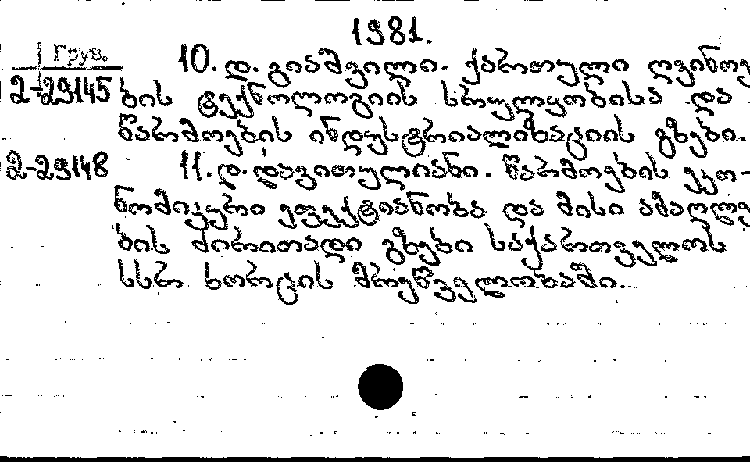 1981.
Грув. 10. დ. გიაშვილი. ქართული ღვინოე
2-29145 ბის ტექნოლოგიის სრულყოფისა და
წარმოების ინდუსტრიალიზაციის გზები.
2-29148 11. დ. დავითულიანი. წარმოების ეკო-
ნომიკური ეფექტიანობა და მისი ამაღლე
ბის ძირითადი გზები საქართველოს
სსრ ხორცის მრეწველობაში.